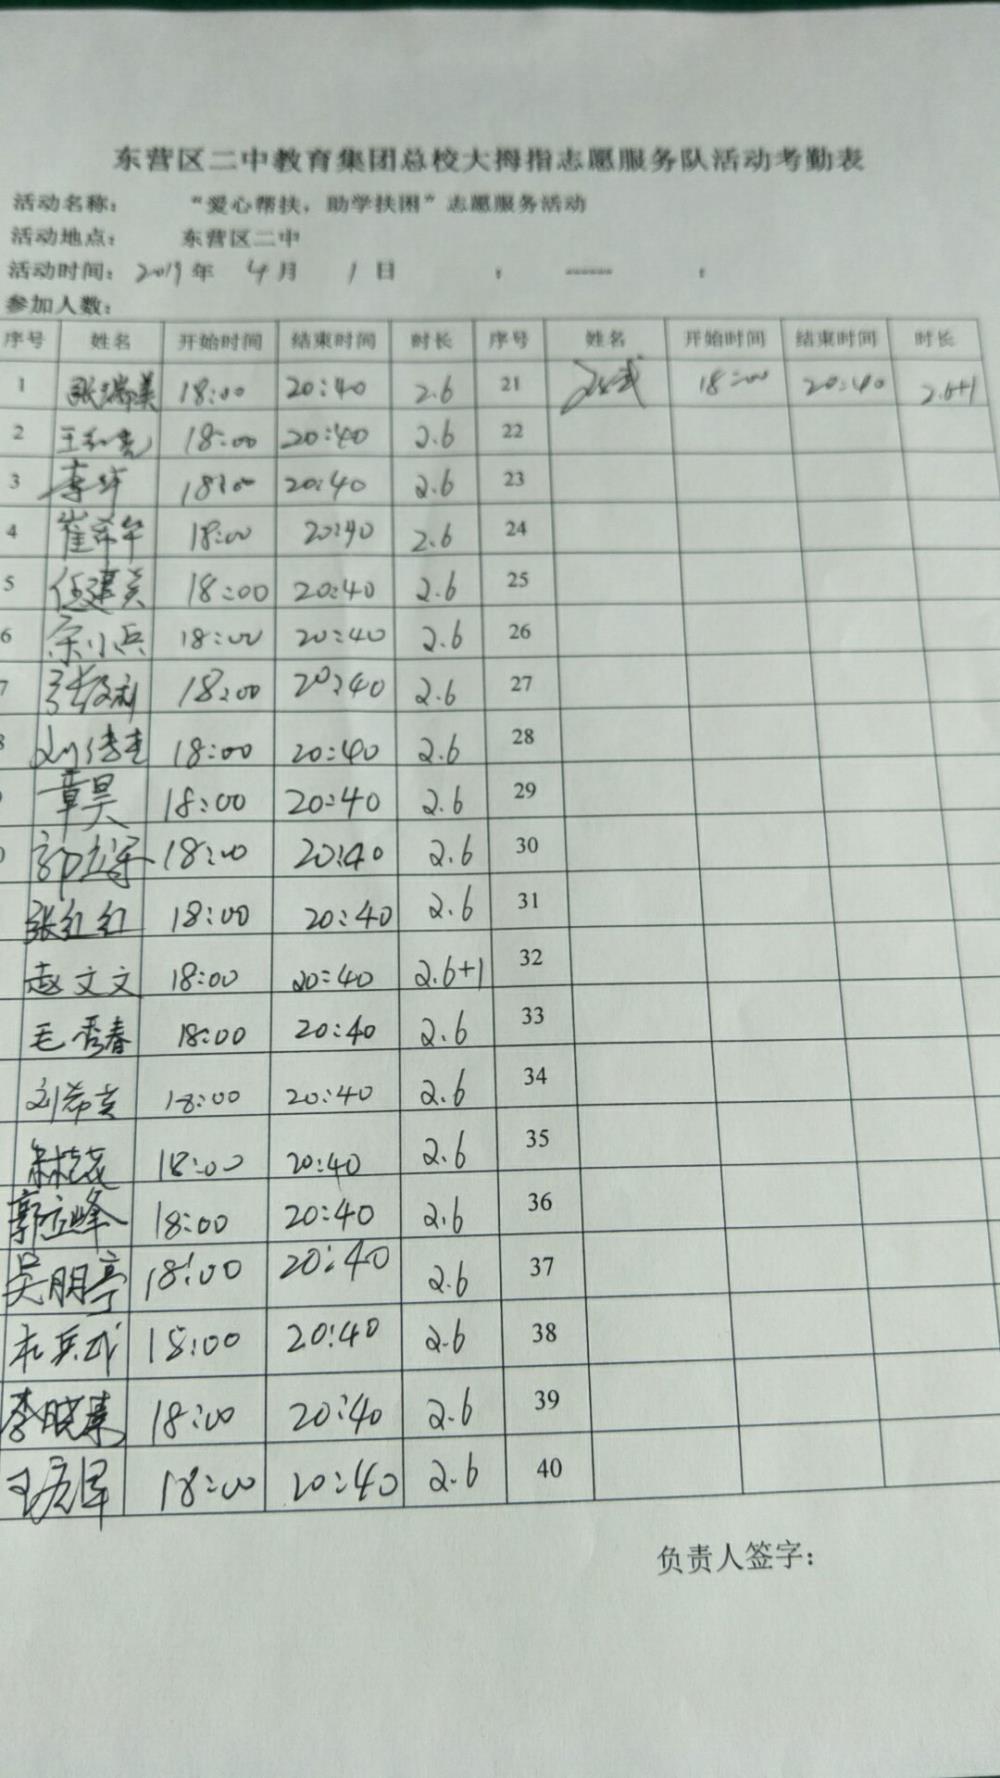 东营区二中教育集团总校大拇指志愿服务队活动考勤表
活动名称： “爱心帮扶，助学扶困”志愿服务活动
活动地点： 东营区二中
活动时间：2019年 4月 1日 ： ------ ：
参加人数：
序号 姓名 开始时间 结束时间 时长 序号 姓名 开始时间 结束时间 时长
1 张瑞美 18:00 20:40 2.6 21 18:00 20:40 2.6+1
2 18:00 20:40 2.6 22
3 李华 18:00 20:40 2.6 23
4 18:00 20:40 2.6 24
5 18:00 20:40 2.6 25
6 18:00 20:40 2.6 26
7 18:00 20:40 2.6 27
8 18:00 20:40 2.6 28
章昊 18:00 20:40 2.6 29
18:00 20:40 2.6 30
张红红 18:00 20:40 2.6 31
赵文文 18:00 20:40 2.6+1 32
毛秀春 18:00 20:40 2.6 33
刘希英 18:00 20:40 2.6 34
朱桂花 18:00 20:40 2.6 35
郭立峰 18:00 20:40 2.6 36
吴朋亭 18:00 20:40 2.6 37
杜兵武 18:00 20:40 2.6 38
李晓素 18:00 20:40 2.6 39
18:00 20:40 2.6 40
负责人签字：